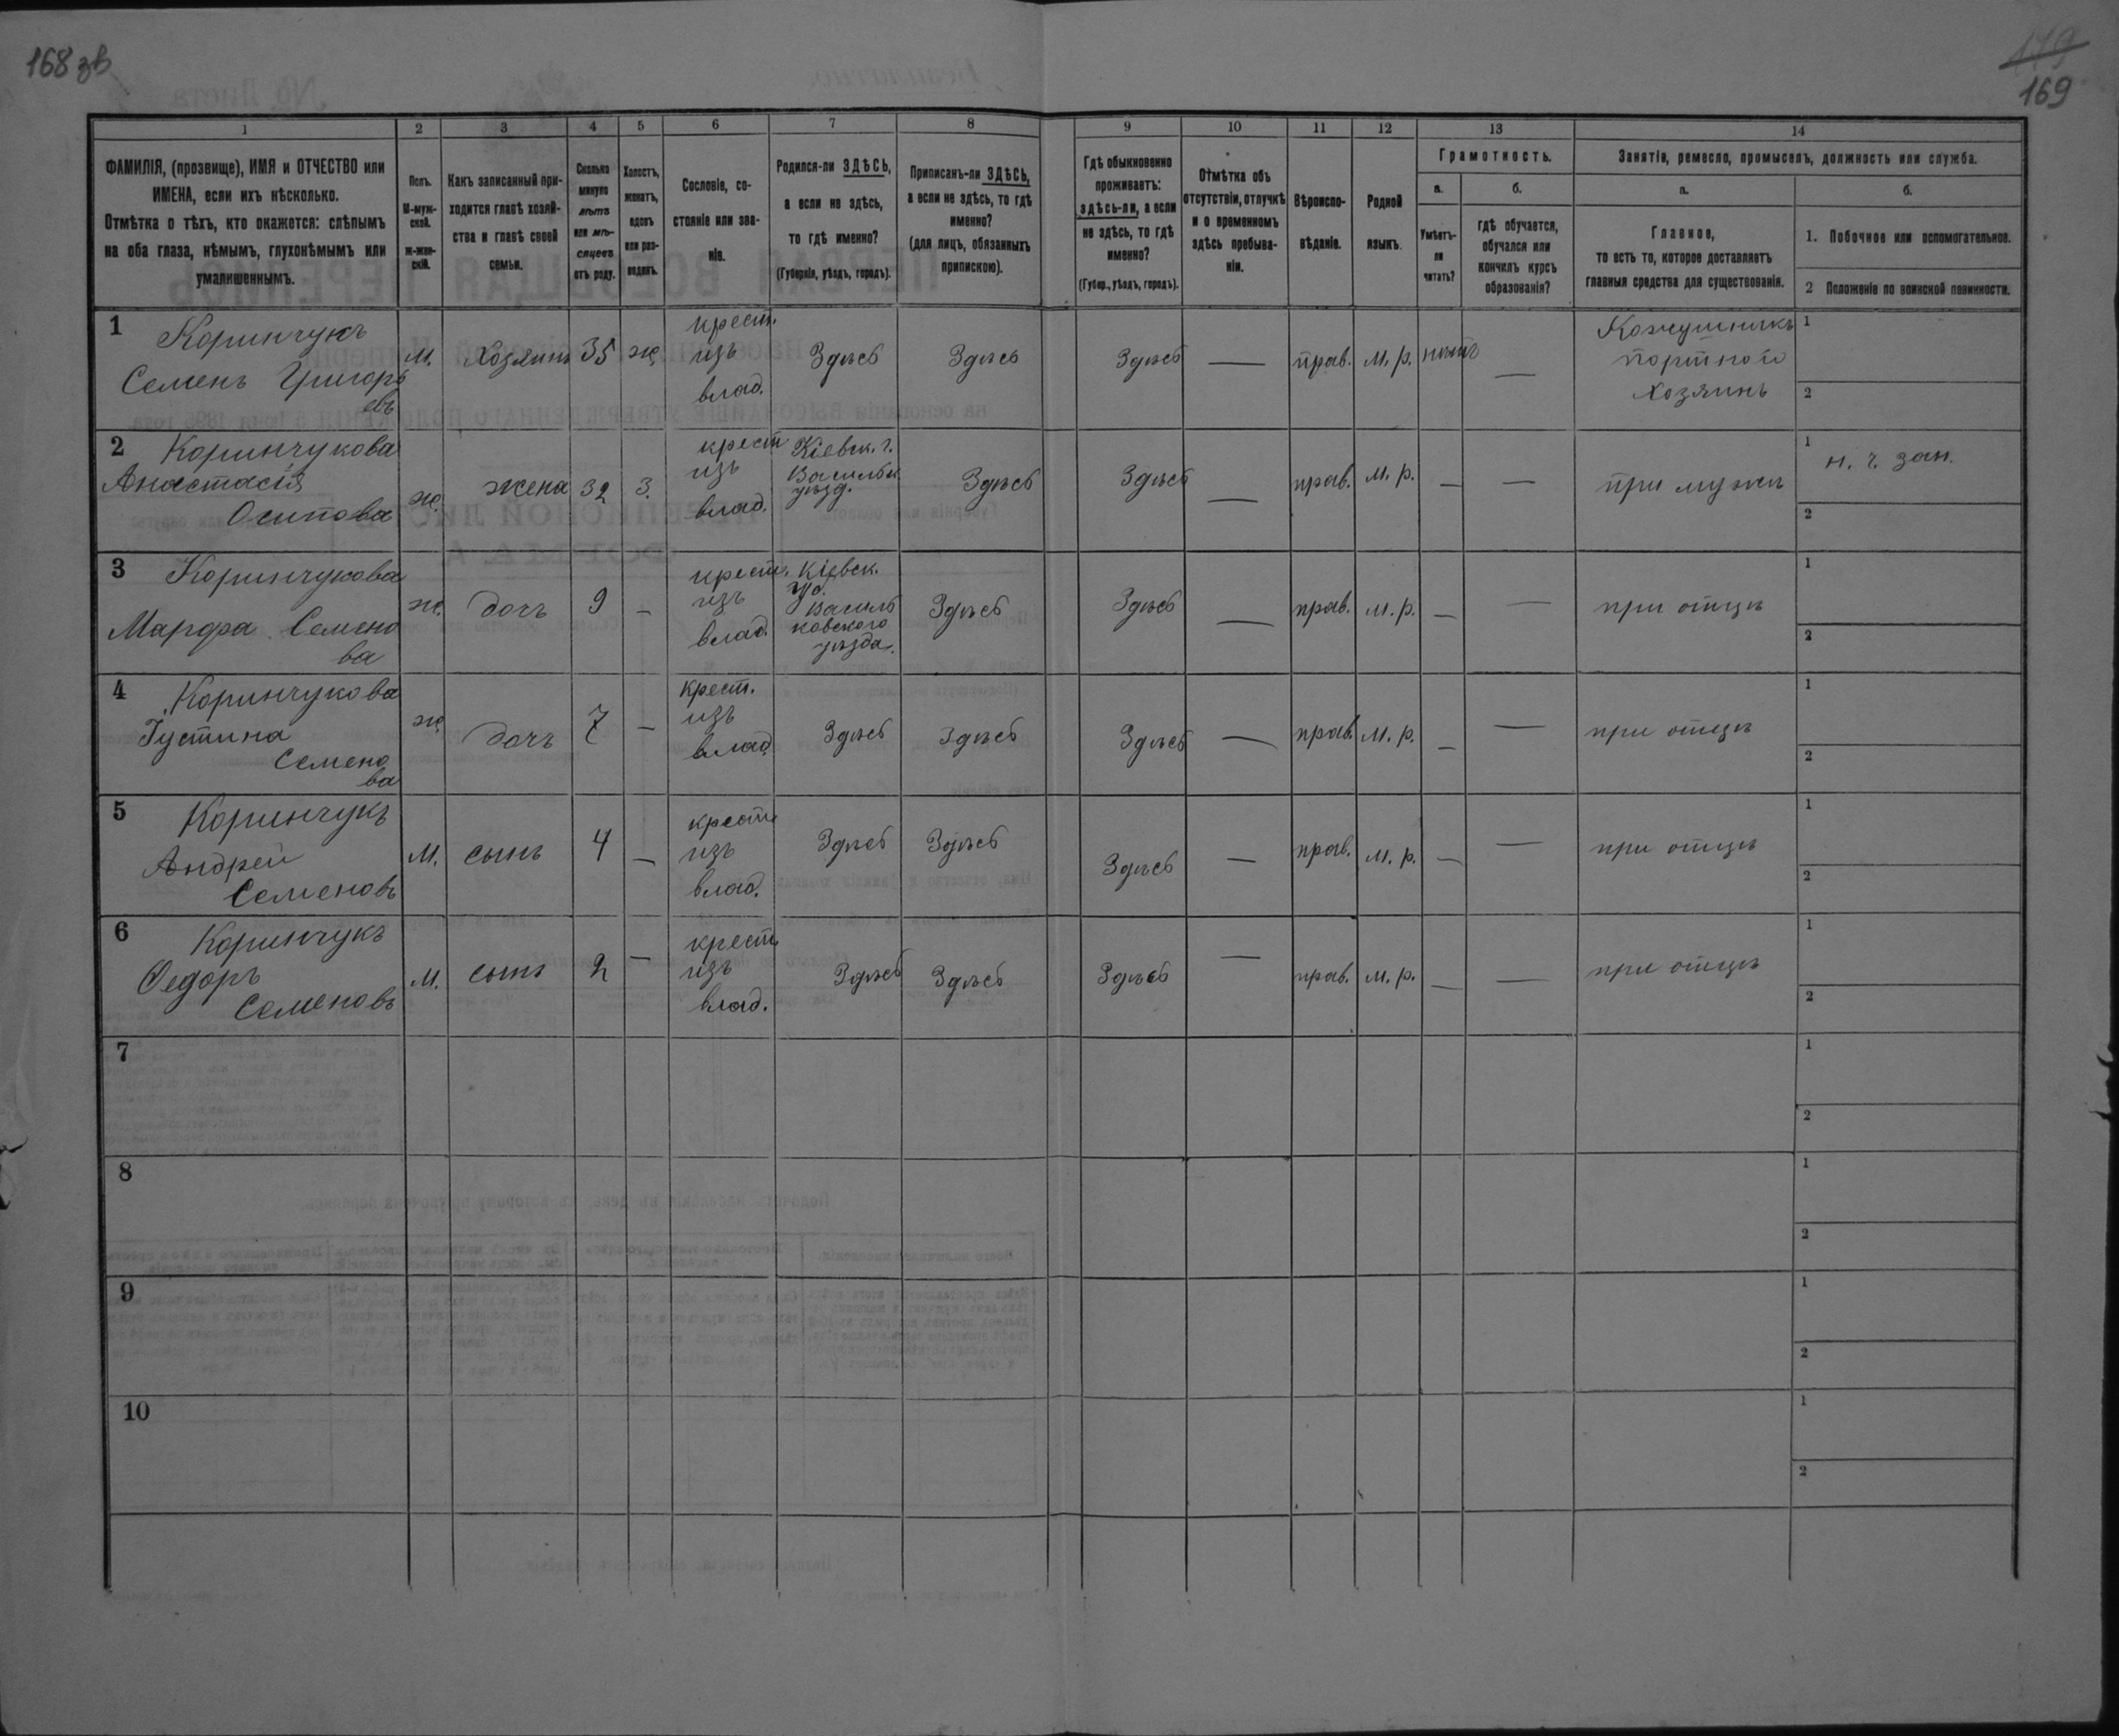 168 зв
179
169
1
2
3
4
5
6
7
8
9
10
11
12
13
14
ФАМИЛІЯ, (прозвище), ИМЯ и ОТЧЕСТВО или
ИМЕНА, если ихъ нѣсколько.
Отмѣтка о тѣхъ, кто окажется: слѣпымъ
на оба глаза, нѣмымъ, глухонѣмымъ или
умалишеннымъ.
Полъ.
М-муж-
ской.
ж-жен-
скій.
Какъ записанный при-
ходится главѣ хозяй-
ства и главѣ своей
семьи.
Сколько
минуло
лѣтъ
или мѣ-
сяцевъ
отъ роду.
Холостъ,
женатъ,
вдовъ
или раз-
веденъ.
Сословіе, со-
стояніе или зва-
ніе.
Родился-ли ЗДѢСЬ,
а если не здѣсь,
то гдѣ именно?
(Губернія, уѣздъ, городъ).
Приписанъ-ли ЗДѢСЬ,
а если не здѣсь, то гдѣ
именно?
(для лицъ, обязанныхъ
припискою).
Гдѣ обыкновенно
проживаетъ:
здѣсь-ли, а если
не здѣсь, то гдѣ
именно?
(Губер., уѣздъ, городъ).
Отмѣтка объ
отсутствіи, отлучкѣ
и о временномъ
здѣсь пребыва-
ніи.
Вѣроиспо-
вѣданіе.
Родной
языкъ.
Грамотность.
а.
б.
Умѣетъ-
ли
читать?
гдѣ обучается,
обучался или
кончилъ курсъ
образованія?
Занятія, ремесло, промыселъ, должность или служба.
а.
б.
Главное,
то есть то, которое доставляетъ
главныя средства для существованія.
1. Побочное или вспомогательное.
2 Положеніе по воинской повинности.
1
Коринчукъ
Семенъ Григорь
евъ
м.
Хозяинъ
35
ж
крест.
изъ
влад.
Здѣсь
Здѣсь
Здѣсь
—
прав.
м. р.
нѣтъ
—
Кожушникъ
портной
хозяинъ
1
2
2
Коринчукова
Анастасія
Осипова
ж.
жена
32
з.
крест
изъ
влад.
Кіевск. г.
Васильк.
уѣзд.
Здѣсь
Здѣсь
—
прав.
м. р.
—
—
при мужѣ
1
н. г. зан.
2
3
Коринчукова
Марфа Семено
ва
ж.
дочь
9
—
крест.
изъ
влад.
Кіевск.
губ.
Василь
ковского
уѣзда.
Здѣсь
Здѣсь
—
прав.
м. р.
—
—
при отцѣ
1
2
4
Коринчукова
Іустина
Семено
ва
ж
дочь
7
—
Крест.
изъ
влад
Здѣсь
Здѣсь
Здѣсь
—
прав.
м. р.
—
—
при отцѣ
1
2
5
Коринчукъ
Андрей
Семеновъ
м.
сынъ
4
—
крест
изъ
влад.
Здѣсь
Здѣсь
Здѣсь
—
прав.
м. р.
—
—
при отцѣ
1
2
6
Коринчукъ
Ѳедоръ
Семеновъ
м.
сынъ
2
—
крест
изъ
влад.
Здѣсь
Здѣсь
Здѣсь
—
прав.
м. р.
—
—
при отцѣ
1
2
7
1
2
8
1
2
9
1
2
10
1
2